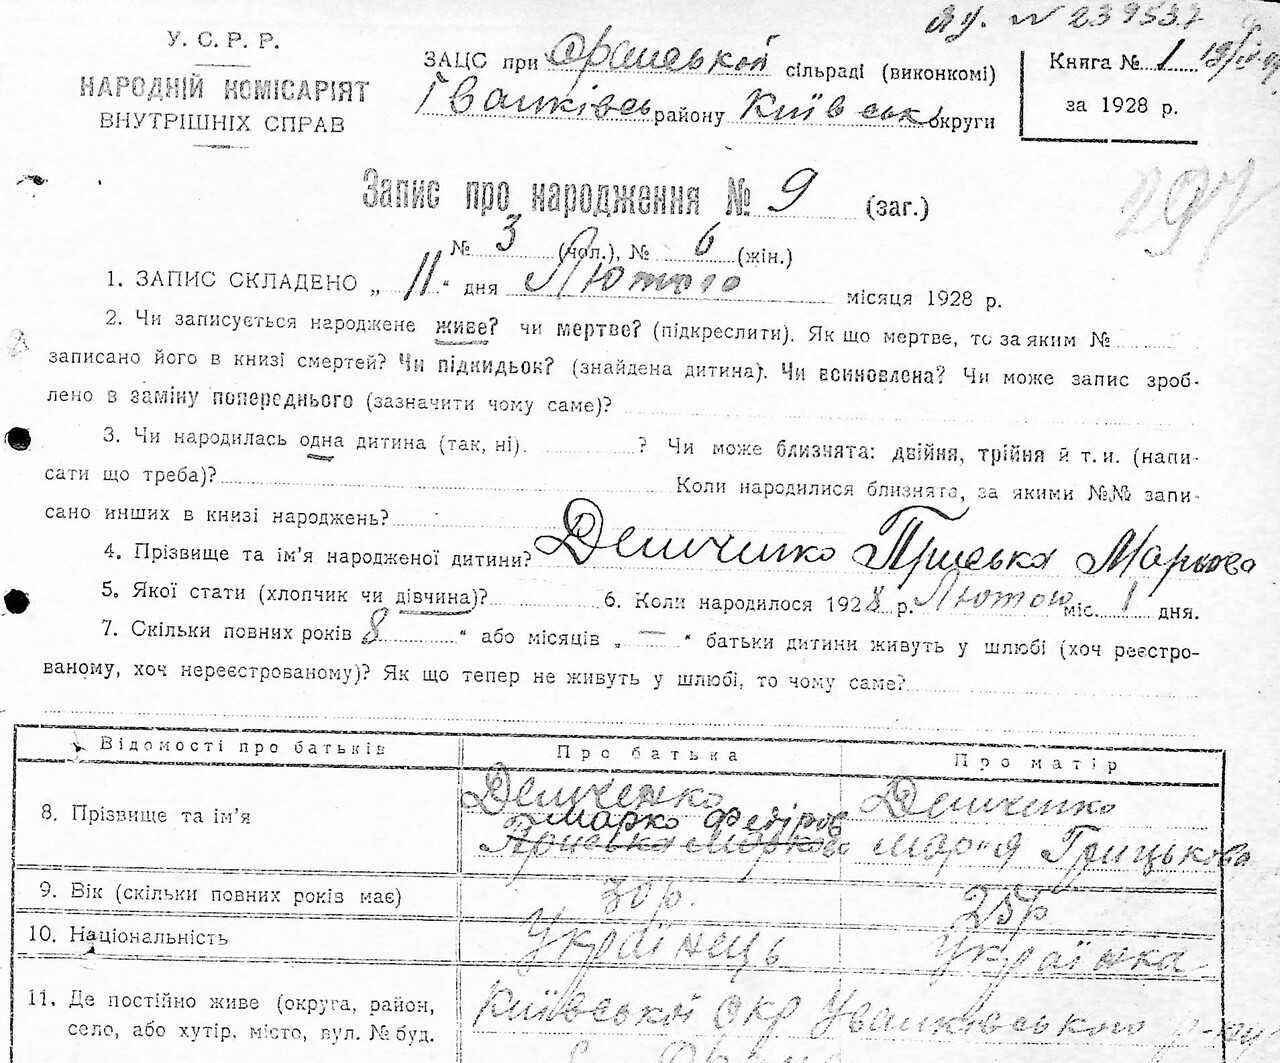 У. С. Р. Р.
НАРОДНІЙ КОМІСАРІЯТ
ВНУТРІШНІХ СПРАВ
№ 239537
ЗАЦС при сільраді (виконкомі)
Іванківсь району Київськ округи
Книга № 1
за 1928 р.
297
Запис про народження № 9 (заг.)
№ 3 (чол.), № 6 (жін.)
1. ЗАПИС СКЛАДЕНО „ 11 “ дня Лютого місяця 1928 р.
2. Чи записується народжене живе? чи мертве? (підкреслити). Як що мертве, то за яким №
записано його в книзі смертей? Чи підкидьок? (знайдена дитина). Чи всиновлена? Чи може запис зроб-
лено в заміну попереднього (зазначити чому саме)?
3. Чи народилась одна дитина (так, ні). ? Чи може близнята: двійня, трійня й т. и. (напи-
сати що треба)? Коли народилися близнята, за якими №№ запи-
сано инших в книзі народжень?
4. Прізвище та ім’я народженої дитини? Демченко Приська Маркова
5. Якої стати (хлопчик чи дівчина)? 6. Коли народилося 1928 р. Лютого міс. 1 дня.
7. Скільки повних років 8 “ або місяців „ — “ батьки дитини живуть у шлюбі (хоч реєстро-
ваному, хоч нереєстрованому)? Як що тепер не живуть у шлюбі, то чому саме?
Відомості про батьків Про батька Про матір
8. Прізвище та ім’я Демченко Марко Федіров Приська Маркова Демченко Мария Грицькова
9. Вік (скільки повних років має) 30 р. 25 р
10. Національність Українець Українка
11. Де постійно живе (округа, район,
село, або хутір, місто, вул. № буд.
Київської Окр Уванківського р-ну